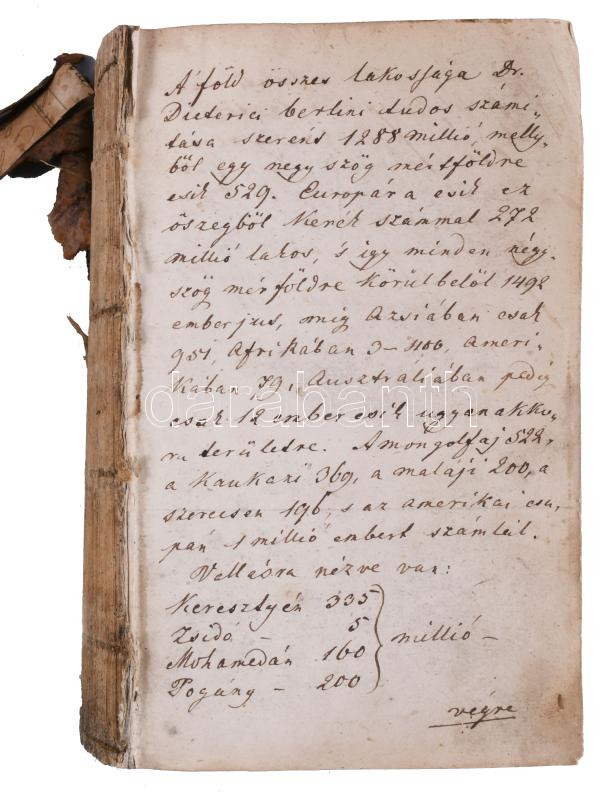 A' föld összes lakossága Dr.
Dieterici berlini tudos számí-
tása szerént 1288 millió, melly-
ből egy negyszög mértföldre
esik 529. Europára esik ez
öszegből kerek számmal 272
millió lakos, 's igy minden négy-
szög mérföldre körülbelöl 1492
ember jus, míg Azsiában csak
951, Afrikában 3-400, Ameri-
kában 79, Ausztraliában pedig
csak 12 ember esik ugyanakko-
ra területre. A mongolfaj 522,
a Kaukazi 369, a maláji 200, a
szerecsen 196, s az amerikai csu-
pán 1 millió embert számlál.
Vallásra nézve van:
Keresztyén 335
Zsidó – 5
Mohamedán 160
Pogány – 200
millió –
végre
darabanth